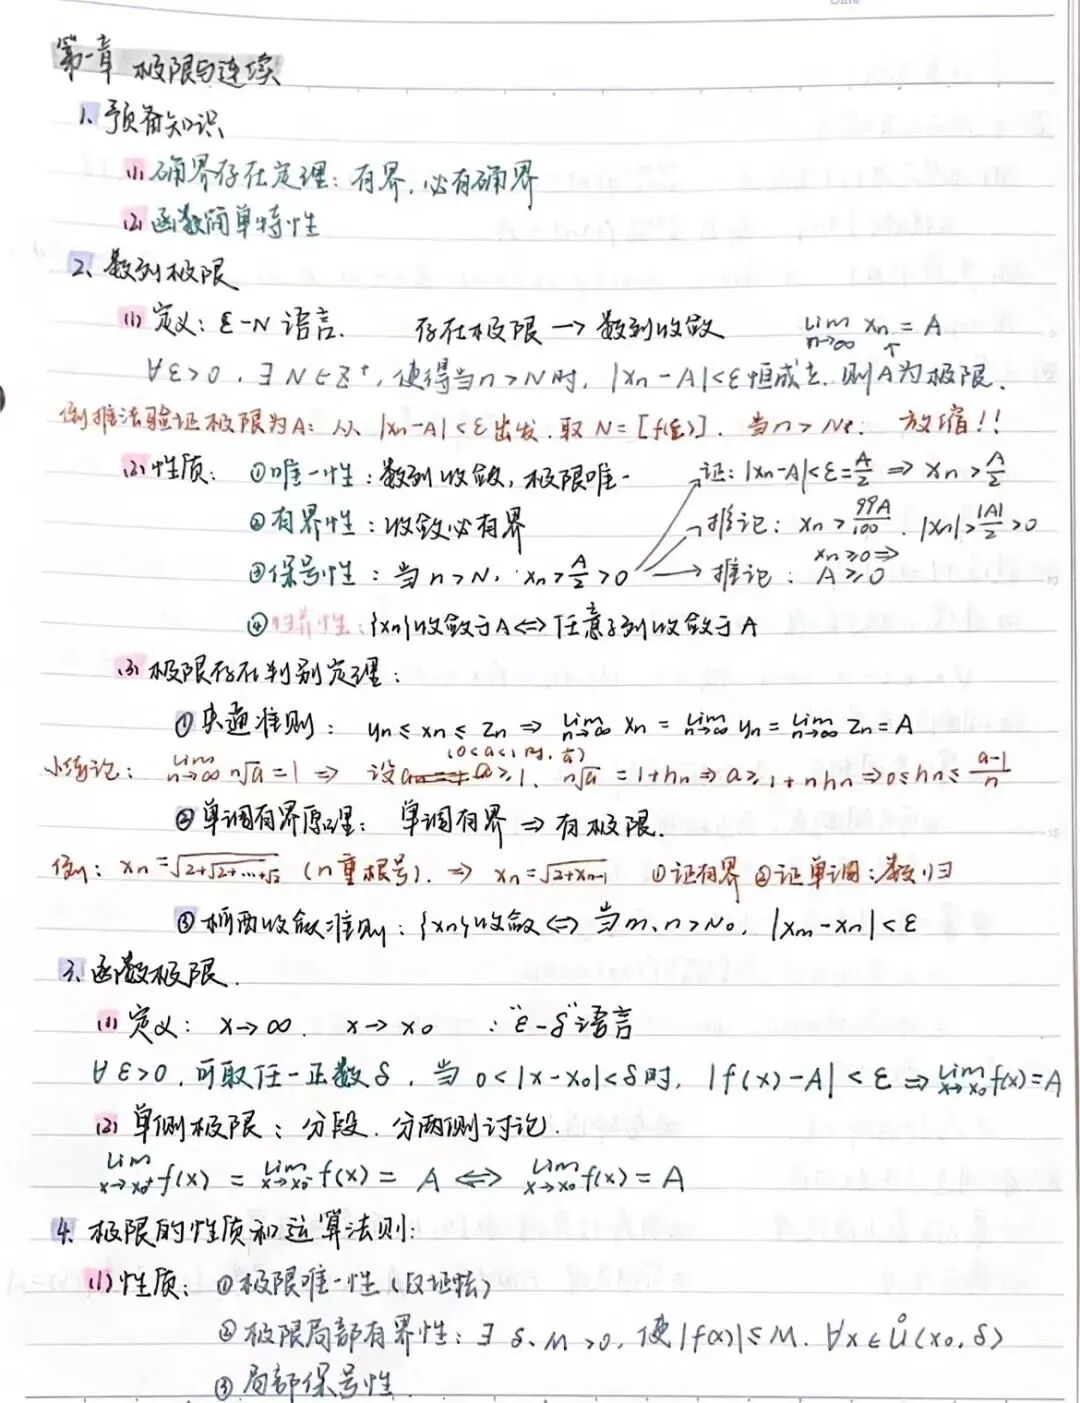 第一章 极限与连续
1、预备知识
(1) 确界存在定理：有界，必有确界
(2) 函数简单特性
2、数列极限
(1) 定义：ε-N 语言. 存在极限 → 数列收敛 lim n→∞ xn = A
∀ε>0, ∃N∈Z⁺, 使得当n>N时, |xn-A|<ε恒成立. 则A为极限.
倒推法验证极限为A: 从 |xn-A|<ε出发. 取 N=[f(ε)]. 当n>N时: 放缩!!
(2) 性质: ①唯一性: 数列收敛, 极限唯一 证: |xn-A|<ε=A/2 ⇒ xn>A/2
②有界性: 收敛必有界 推论: xn>99A/100. |xn|>|A|/2>0
③保号性: 当n>N, xn>A/2>0 → 推论: xn≥0⇒A≥0
④归并性: {xn}收敛于A⇔任意子列收敛于A
(3) 极限存在判别定理:
①夹逼准则: yn≤xn≤zn ⇒ lim n→∞ xn = lim n→∞ yn = lim n→∞ zn = A
小结论: lim n→∞ n√a=1 ⇒ 设a≥1. n√a=1+hn⇒a≥1+nhn⇒0≤hn≤(a-1)/n
②单调有界原理: 单调有界 ⇒ 有极限.
例: xn=√2+√2+…+√2 (n重根号). ⇒ xn=√2+xn-1 ①证有界 ②证单调: 数归
③柯西收敛准则: {xn}收敛⇔当m、n>N₀, |xm-xn|<ε
3、函数极限.
(1) 定义: x→∞. x→x₀ : "ε-δ"语言
∀ε>0, 可取任一正数δ, 当 0<|x-x₀|<δ时, |f(x)-A|<ε⇒lim x→x₀ f(x)=A
(2) 单侧极限: 分段. 分两侧讨论.
lim x→x₀⁺ f(x) = lim x→x₀⁻ f(x) = A ⇔ lim x→x₀ f(x)=A
4. 极限的性质和运算法则:
(1) 性质: ①极限唯一性(反证法)
②极限局部有界性: ∃ δ、M>0, 使|f(x)|≤M. ∀x∈Ů(x₀,δ)
③局部保号性